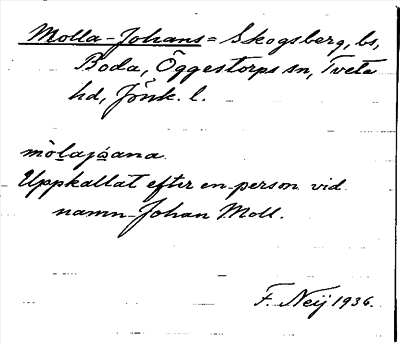 Molla-Johans = Skogsberg, bs,
Boda, Öggestorps sn, Tveta
hd, Jönk. l.
mòlajòana.
Uppkallat efter en person vid
namn Johan Moll.
F. Neij 1936.